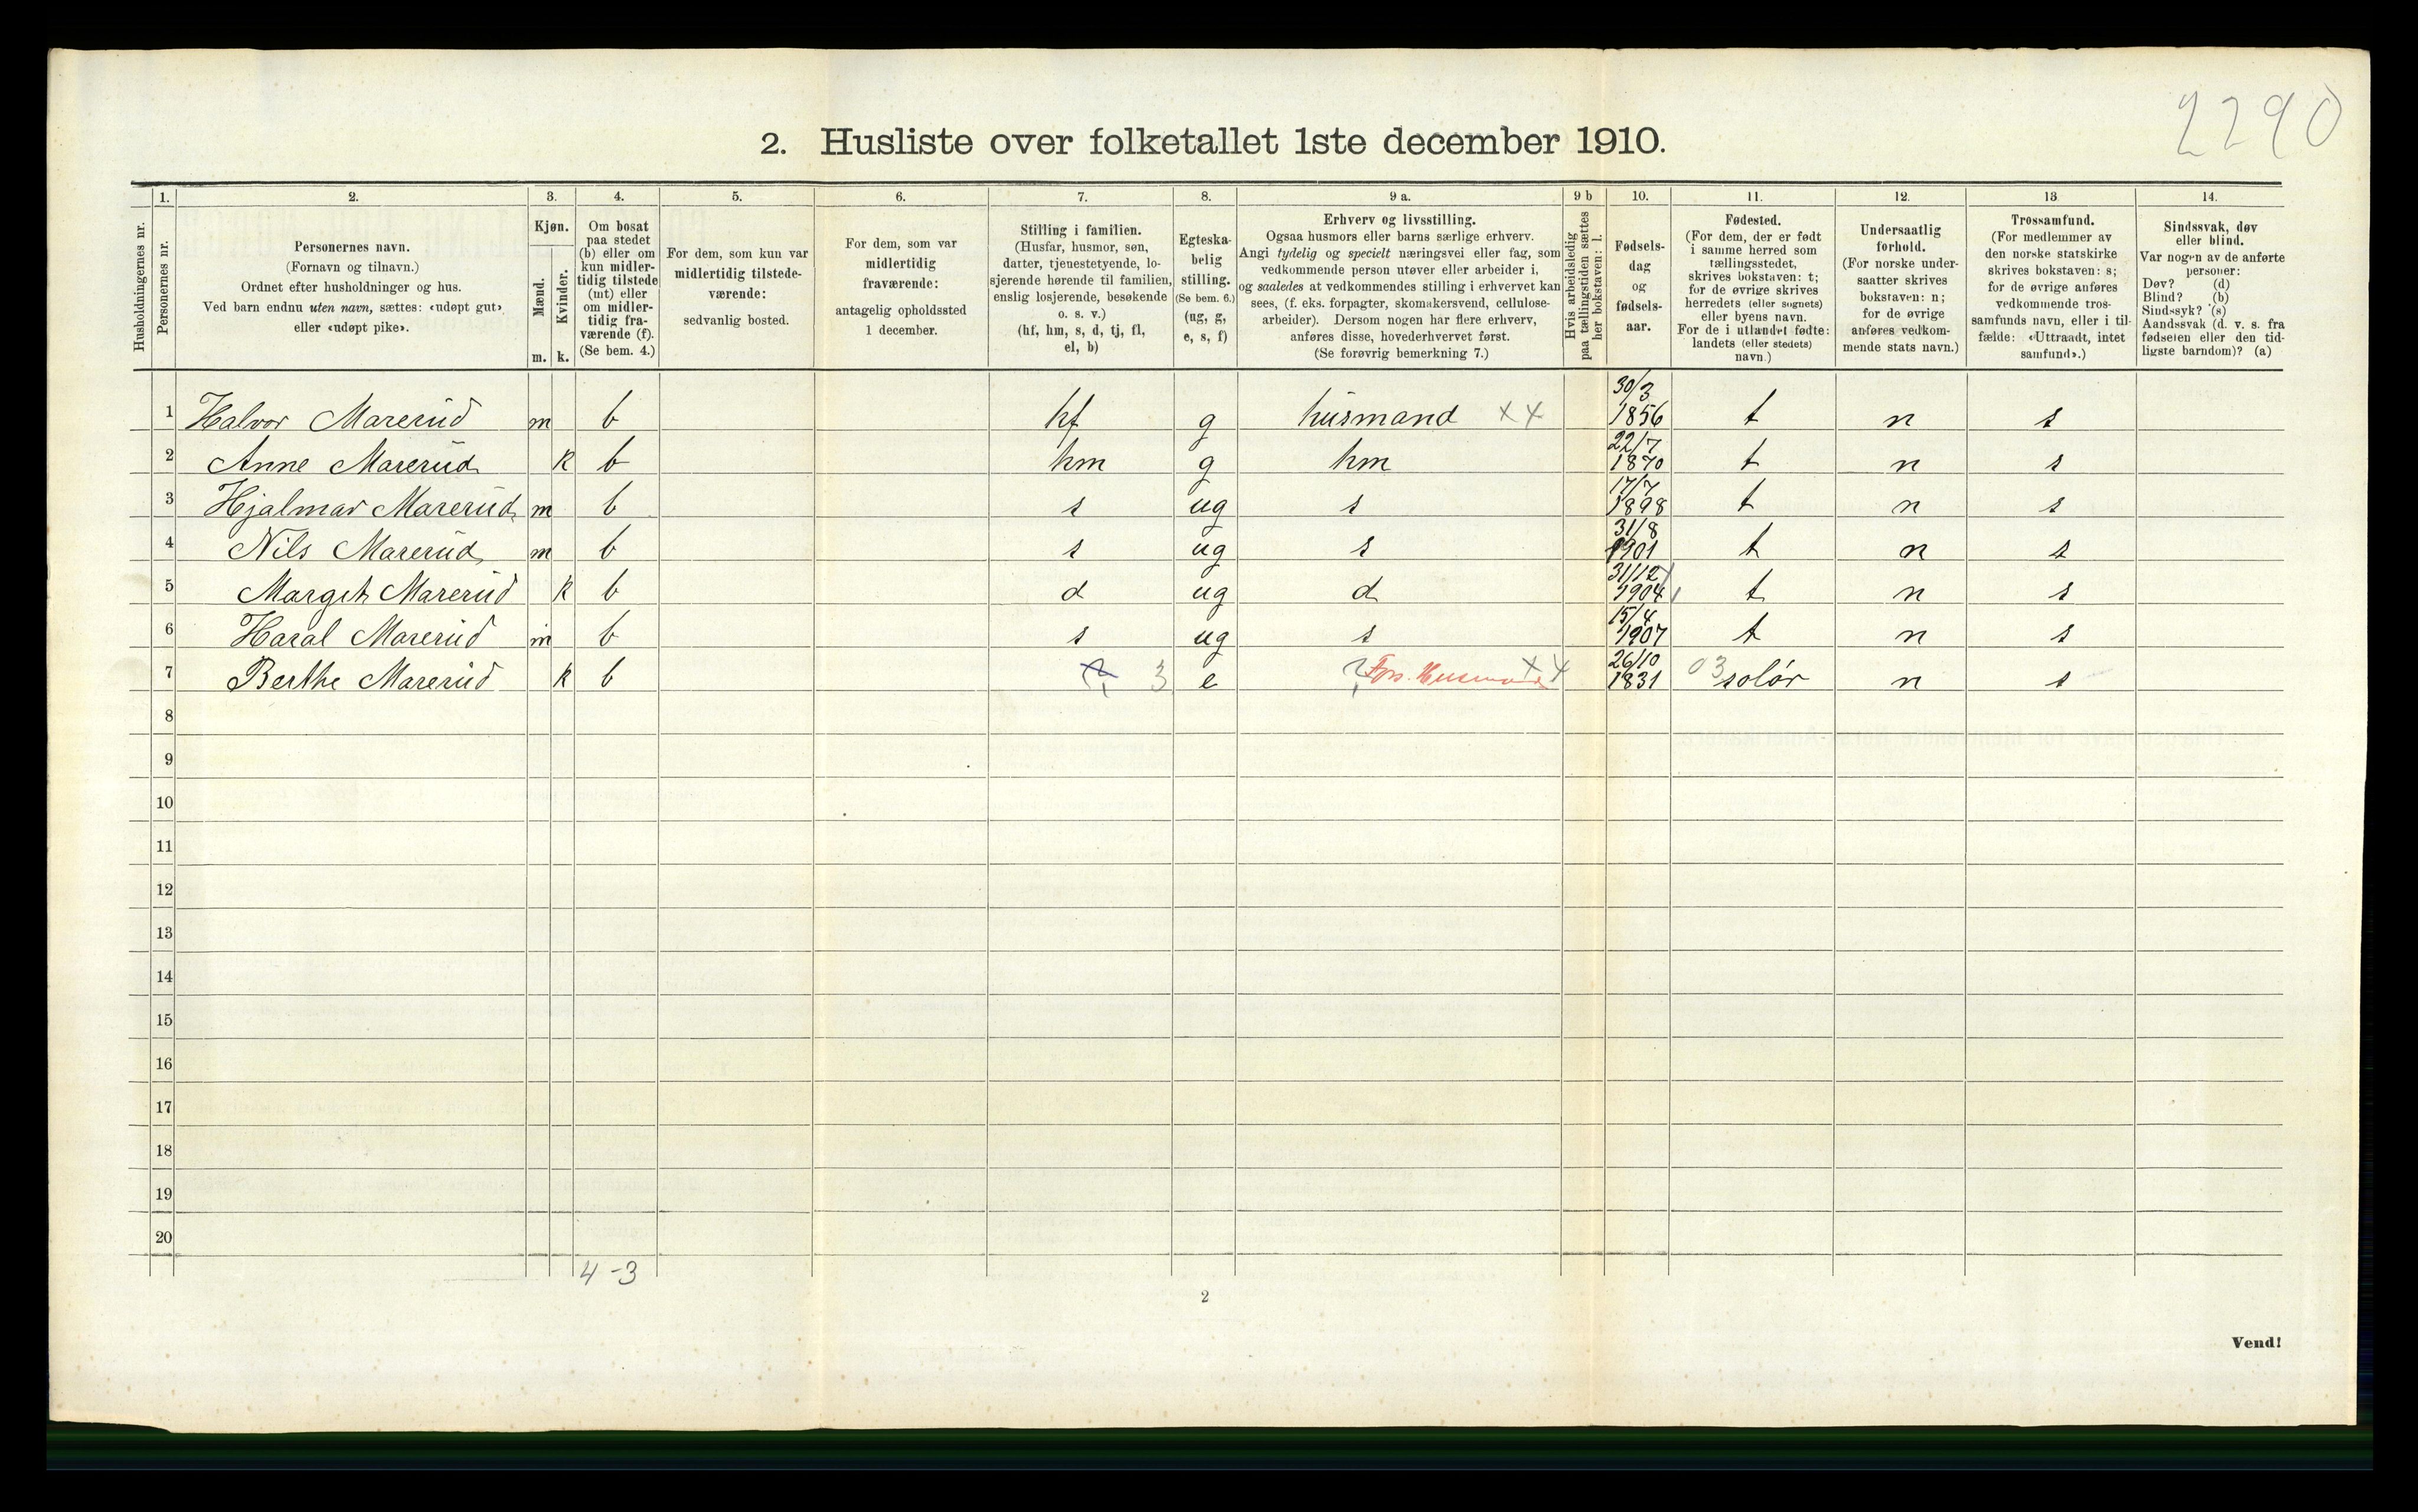 2290
2. Husliste over folketallet 1ste december 1910.
Husholdningernes nr.
1.
Personernes nr.
2.
Personernes navn.
(Fornavn og tilnavn.)
Ordnet efter husholdninger og hus.
Ved barn endnu uten navn, sættes: «udøpt gut»
eller «udøpt pike».
3.
Kjøn.
Mænd.
Kvinder.
m. k.
4.
Om bosat
paa stedet
(b) eller om
kun midler-
tidig tilstede
(mt) eller
om midler-
tidig fra-
værende (f).
(Se bem. 4.)
5.
For dem, som kun var
midlertidig tilstede-
værende:
sedvanlig bosted.
6.
For dem, som var
midlertidig
fraværende:
antagelig opholdssted
1 december.
7.
Stilling i familien.
(Husfar, husmor, søn,
datter, tjenestetyende, lo-
sjerende hørende til familien,
enslig losjerende, besøkende
o. s. v.)
(hf, hm, s, d, tj, fl,
el, b)
8.
Egteska-
belig
stilling.
(Se bem. 6.)
(ug, g,
e, s, f)
9 a.
Erhverv og livsstilling.
Ogsaa husmors eller barns særlige erhverv.
Angi tydelig og specielt næringsvei eller fag, som
vedkommende person utøver eller arbeider i,
og saaledes at vedkommendes stilling i erhvervet kan
sees, (f. eks. forpagter, skomakersvend, cellulose-
arbeider). Dersom nogen har flere erhverv,
anføres disse, hovederhvervet først.
(Se forøvrig bemerkning 7.)
9 b
Hvis arbeidsledig
paa tællingstiden sættes
her bokstaven: l.
10.
Fødsels-
dag
og
fødsels-
aar.
11.
Fødested.
(For dem, der er født
i samme herred som
tællingsstedet,
skrives bokstaven: t;
for de øvrige skrives
herredets (eller sognets)
eller byens navn.
For de i utlandet fødte:
landets (eller stedets)
navn.)
12.
Undersaatlig
forhold.
(For norske under-
saatter skrives
bokstaven: n;
for de øvrige
anføres vedkom-
mende stats navn.)
13.
Trossamfund.
(For medlemmer av
den norske statskirke
skrives bokstaven: s;
for de øvrige anføres
vedkommende tros-
samfunds navn, eller i til-
fælde: «Uttraadt, intet
samfund».)
14.
Sindssvak, døv
eller blind.
Var nogen av de anførte
personer:
Døv? (d)
Blind? (b)
Sindssyk? (s)
Aandssvak (d. v. s. fra
fødselen eller den tid-
ligste barndom)? (a)
1 Halvor Marerud m b hf g husmand x 4 30/3 1856 t n s
2 Anne Marerud k b hm g hm 22/7 1870 t n s
3 Hjalmar Marerud m b s ug s 17/7 1898 t n s
4 Nils Marerud m b s ug s 31/8 1901 t n s
5 Margit Marerud k b d ug d 31/12 1904 t n s
6 Haral Marerud m b s ug s 15/4 1907 t n s
7 Berthe Marerud k b ? 3 e ? Fors. Husmand x 4 26/10 1831 03 solør n s
8
9
10
11
12
13
14
15
16
17
18
19
20
4 - 3
2
Vend!